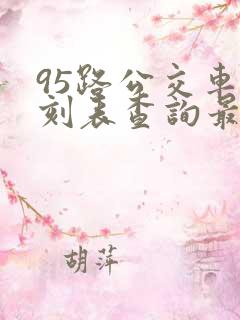 95路公交車
刻表查詢最
胡萍